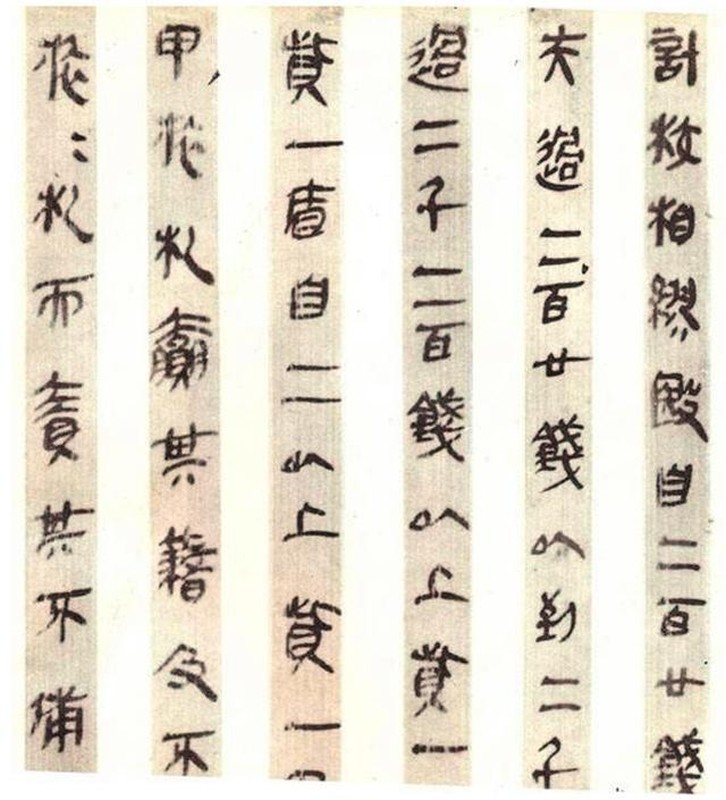 計校相繆殹自二百廿錢
夫過二百廿錢以到二千
過二千二百錢以上貲一
貲一盾自二以上貲一
甲旅札贏其籍及不
札而責其不備